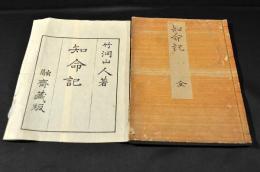 竹洞山人著
知命記
齋藏版
知命記
全